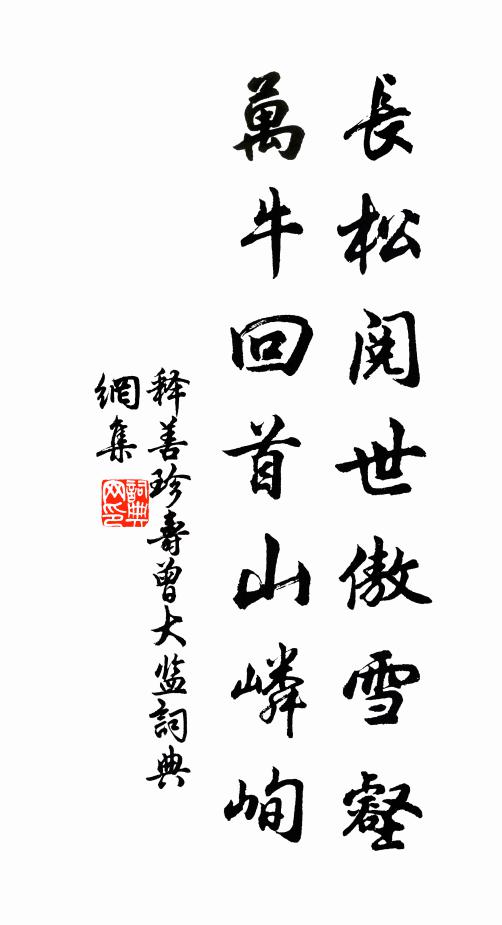 長松閱世傲雪壑
萬牛回首山嶙峋
释善珍壽曾大监詞典
網集
詞典
网印